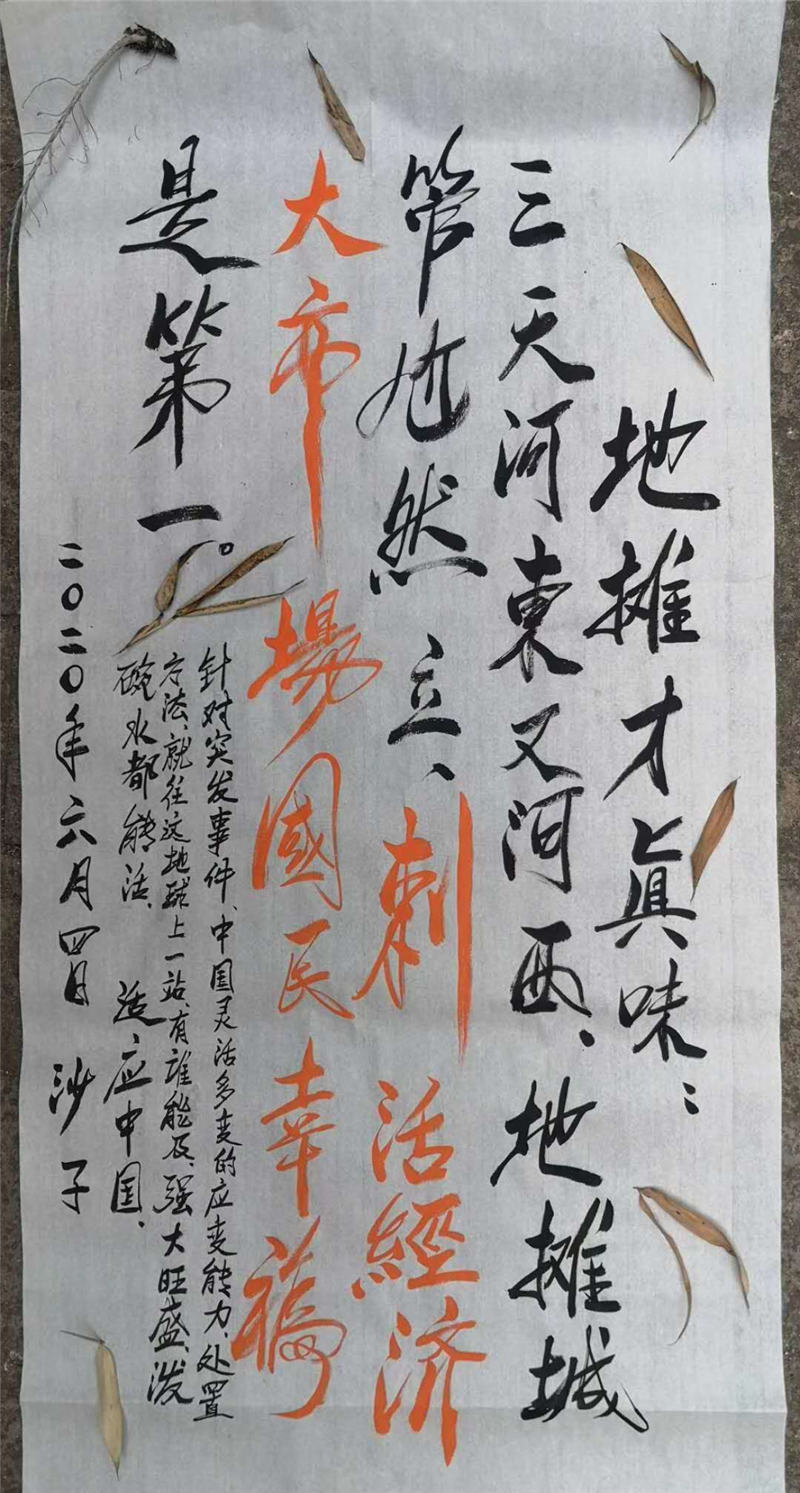 地摊才真味：
三天河東又河西、地摊城
管尬然立、刺活經济
大市場國民幸福
是第一。
针对突发事件、中国灵活多变的应变能力、处置
方法、就往这地球上一站、有谁能及、强大旺盛、泼
碗水都能活、适应中国、
二〇二〇年六月四日 沙子